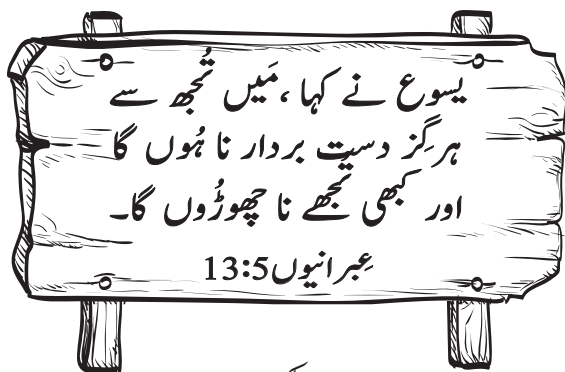 یسوع نے کہا ،مَیں تُجھ سے
ہرگِز دست بردار نا ہُوں گا
اور کبھی تجُھے نا چھوڑُوں گا۔
عِبرانیوں13:5